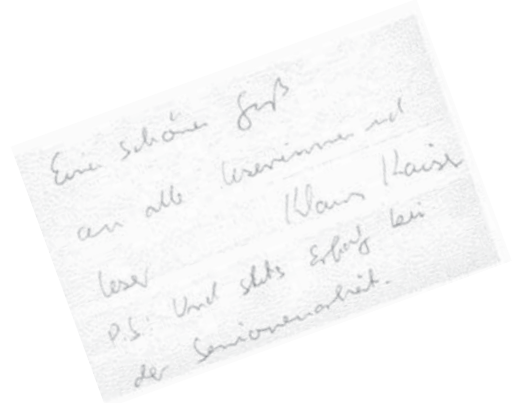 Einen schönen Gruß
an alle Leserinnen und
Leser Klaus Kaiser
P.S: Und stets Erfolg bei
der Seniorenarbeit.